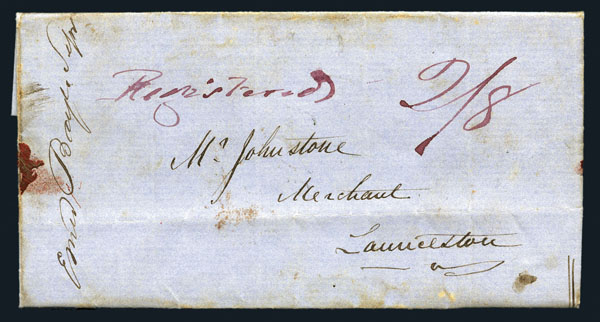 Registered 2/8
Mr Johnstone
Merchant
Launceston